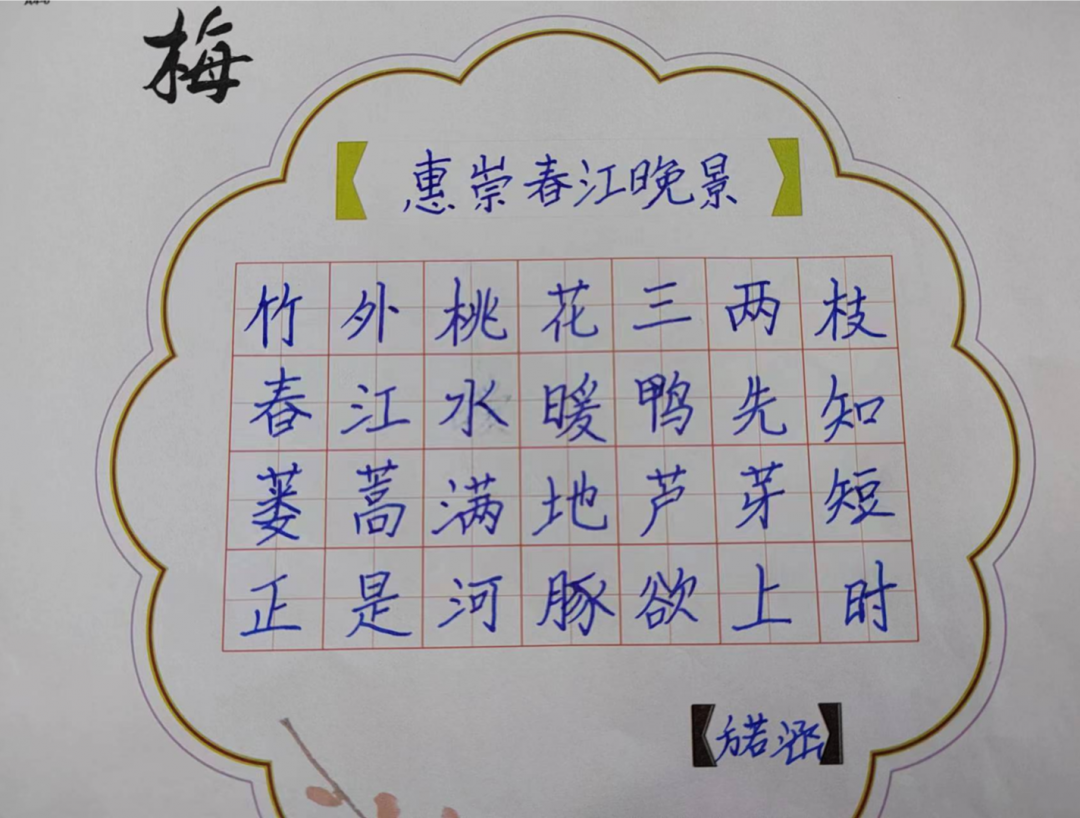 梅
惠崇春江晚景
竹外桃花三两枝
春江水暖鸭先知
蒌蒿满地芦芽短
正是河豚欲上时
方若涵